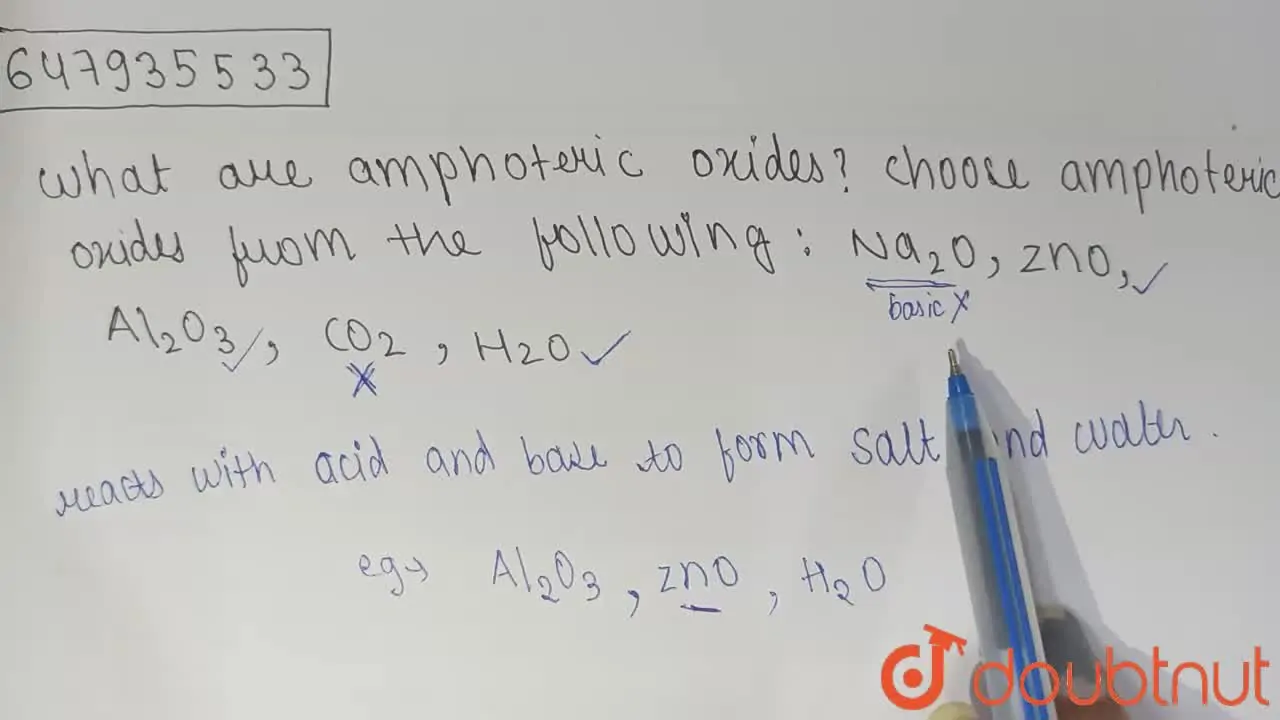 647935533
What are amphoteric oxides? Choose amphoteric
oxides from the following: Na₂O, ZnO, ✓
basic X
Al₂O₃ ✓, CO₂, H₂O ✓
X
reacts with acid and base to form salt and water.
eg→ Al₂O₃, ZnO, H₂O
doubtnut